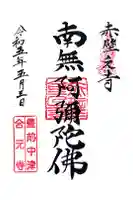 赤壁合元寺
南無阿彌陀佛
令和五年五月三日
豊前中津
合元寺